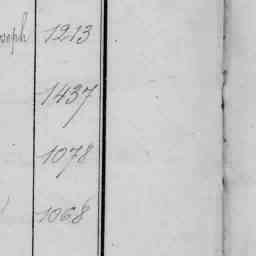 oseph 1213
1437
1078
1068